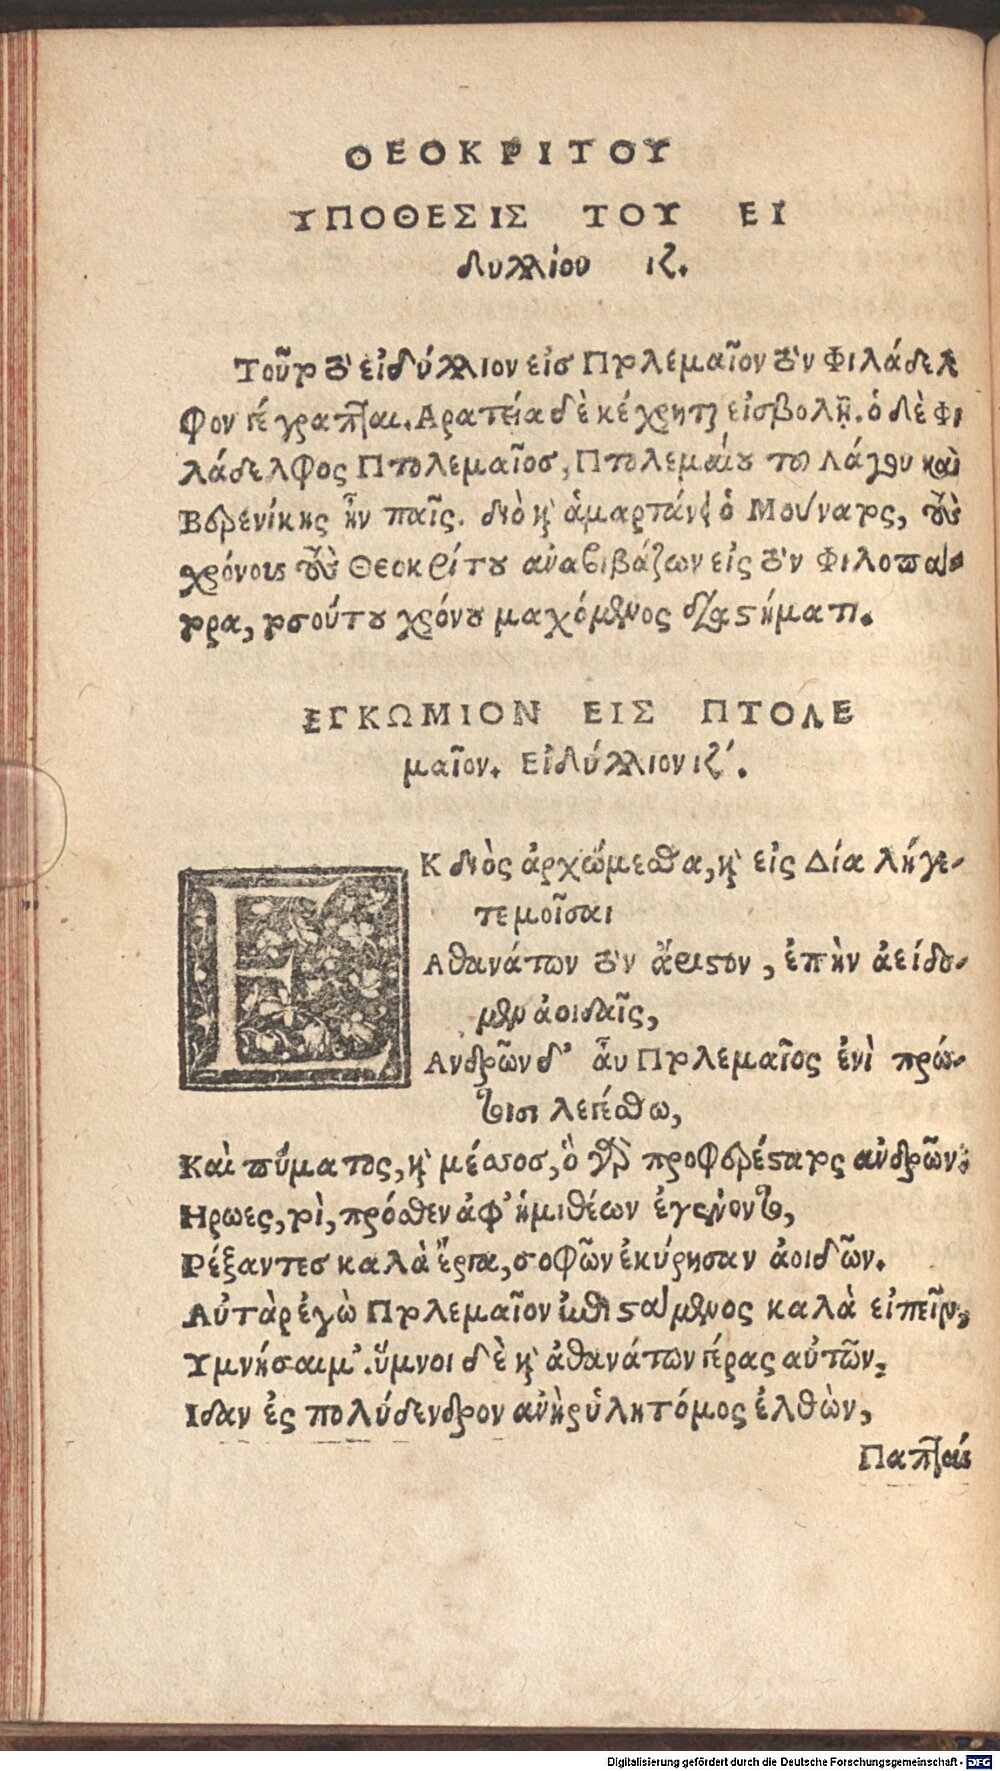 ΘΕΟΚΡΙΤΟΥ
ΥΠΟΘΕΣΙΣ ΤΟΥ ΕΙ
δυλλίου ιζ.
Τοῦτο τὸ εἰδύλλιον εἰς Πτολεμαῖον τὸν Φιλάδελ
φον γέγραπται. Αρατεία δὲ κέχρηται εἰσβολῇ. ὁ δὲ Φι
λάδελφος Πτολεμαῖος, Πτολεμαίου τοῦ Λάγου καὶ
Βερενίκης ἦν παῖς. διὸ καὶ ἁμαρτάνει ὁ Μούνατος, τοὺς
χρόνους τοὺς Θεοκρίτου ἀναβιβάζων εἰς τὸν Φιλοπά-
τορα, τοσούτου χρόνου μαχόμενος διαστήματι.
ΕΓΚΩΜΙΟΝ ΕΙΣ ΠΤΟΛΕ
μαῖον. Εἰδύλλιον ιζ΄.
ΕΚ διὸς ἀρχώμεσθα, καὶ εἰς Δία λήγε-
τε μοῖσαι
Αθανάτων τὸν ἄριστον, ἐπὴν ἀείδο-
μεν ἀοιδαῖς,
Ανδρῶν δ' ἆυ Πτολεμαῖος ἐνὶ πρώ-
τοισι λεγέσθω,
Καὶ πύματος, καὶ μέσσος, ὃ γὰρ προφερέστατος ἀνδρῶν.
Ηρωες, τοὶ, πρόσθεν ἀφ' ἡμιθέων ἐγένοντο,
Ρέξαντες καλὰ ἔργα, σοφῶν ἐκύρησαν ἀοιδῶν.
Αὐτὰρ ἐγὼ Πτολεμαῖον ἐπιστάμενος καλὰ εἰπεῖν,
Υμνήσαιμ'. ὕμνοι δὲ καὶ ἀθανάτων γέρας αὐτῶν.
Ιδαν ἐς πολύδενδρον ἀνὴρ ὑλητόμος ἐλθὼν,
Παπταί
Digitalisierung gefördert durch die Deutsche Forschungsgemeinschaft - DFG